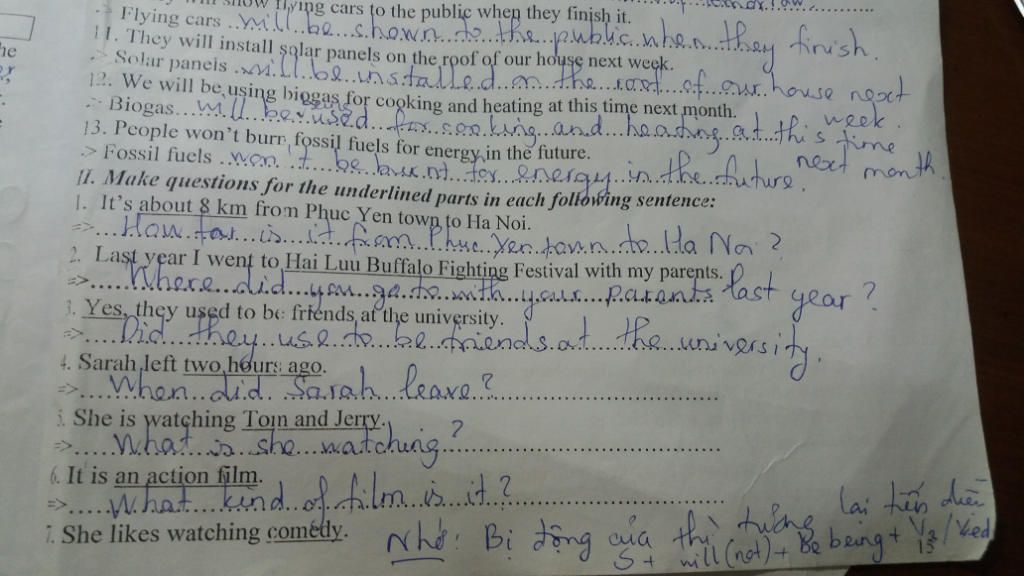 show flying cars to the public when they finish it.
-> Flying cars will be shown to the public when they finish.
11. They will install solar panels on the roof of our house next week.
-> Solar panels will be installed on the roof of our house next week.
12. We will be using biogas for cooking and heating at this time next month.
-> Biogas will be being used for cooking and heating at this time next month.
13. People won't burn fossil fuels for energy in the future.
-> Fossil fuels won't be burnt for energy in the future.
II. Make questions for the underlined parts in each following sentence:
1. It's about 8 km from Phuc Yen town to Ha Noi.
=> How far is it from Phuc Yen town to Ha Noi?
2. Last year I went to Hai Luu Buffalo Fighting Festival with my parents.
=> Where did you go to with your parents last year?
3. Yes, they used to be friends at the university.
=> Did they use to be friends at the university.
4. Sarah left two hours ago.
=> When did Sarah leave?
5. She is watching Tom and Jerry.
=> What is she watching?
6. It is an action film.
=> What kind of film is it?
7. She likes watching comedy.
Nhớ: Bị động của thì tương lai tiến diễn
S + will (not) + be being + V3/Ved